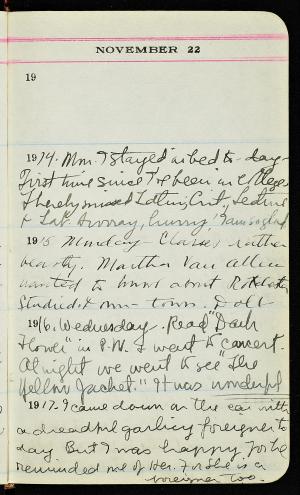 NOVEMBER 22
19
1914. Mon. Stayed in bed to-day
First time since I've been in college
Thereby missed Latin, Lecture
& Lab. Hurray, hurray,
1915 Monday - Classes rather
beastly. Martha Van Allen
wanted to know about
Studied &
1916. Wednesday. Read "Dark
Flower" in P.M. I went to concert.
At night we went to see "The
Yellow Jacket." It was wonderful
1917. I came down on the car with
a dreadful garlicy foreigner to
day. But I was happy for he
reminded me of Her. For she is a
foreigner too.